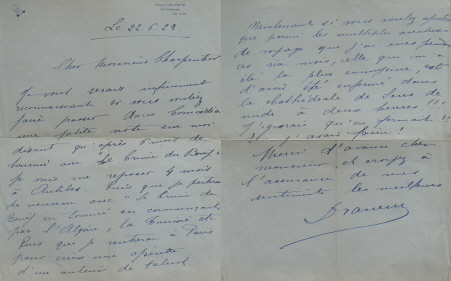 Le 22.5.29
Cher Monsieur Charpentier
Je vous serais infiniment
reconnaissant si vous vouliez
faire passer dans Comoedia
une petite note sur moi
disant qu'après 6 mois de
tournée avec "Le Crime du Bouif"
je vais me reposer 4 mois
à Antibes. Puis que je partirai
de nouveau avec "Le Crime du
Bouif" en tournée en commençant
par l'Algérie, la Tunisie etc
Puis que je rentrerai à Paris
pour créer une opérette
d'un auteur de talent.
Maintenant si vous voulez ajouter
que parmi les multiples aventures
de voyage que j'ai eues pendant
ces six mois, celle qui m'a
été la plus ennuyeuse, est
d'avoir été enfermé dans
la cathédrale de Sens de
midi à deux heures!!!
J'ignorais qu'on fermait!!
j'avais faim!
Merci d'avance cher
monsieur et croyez à
l'assurance de mes
sentiments les meilleurs
Dranem